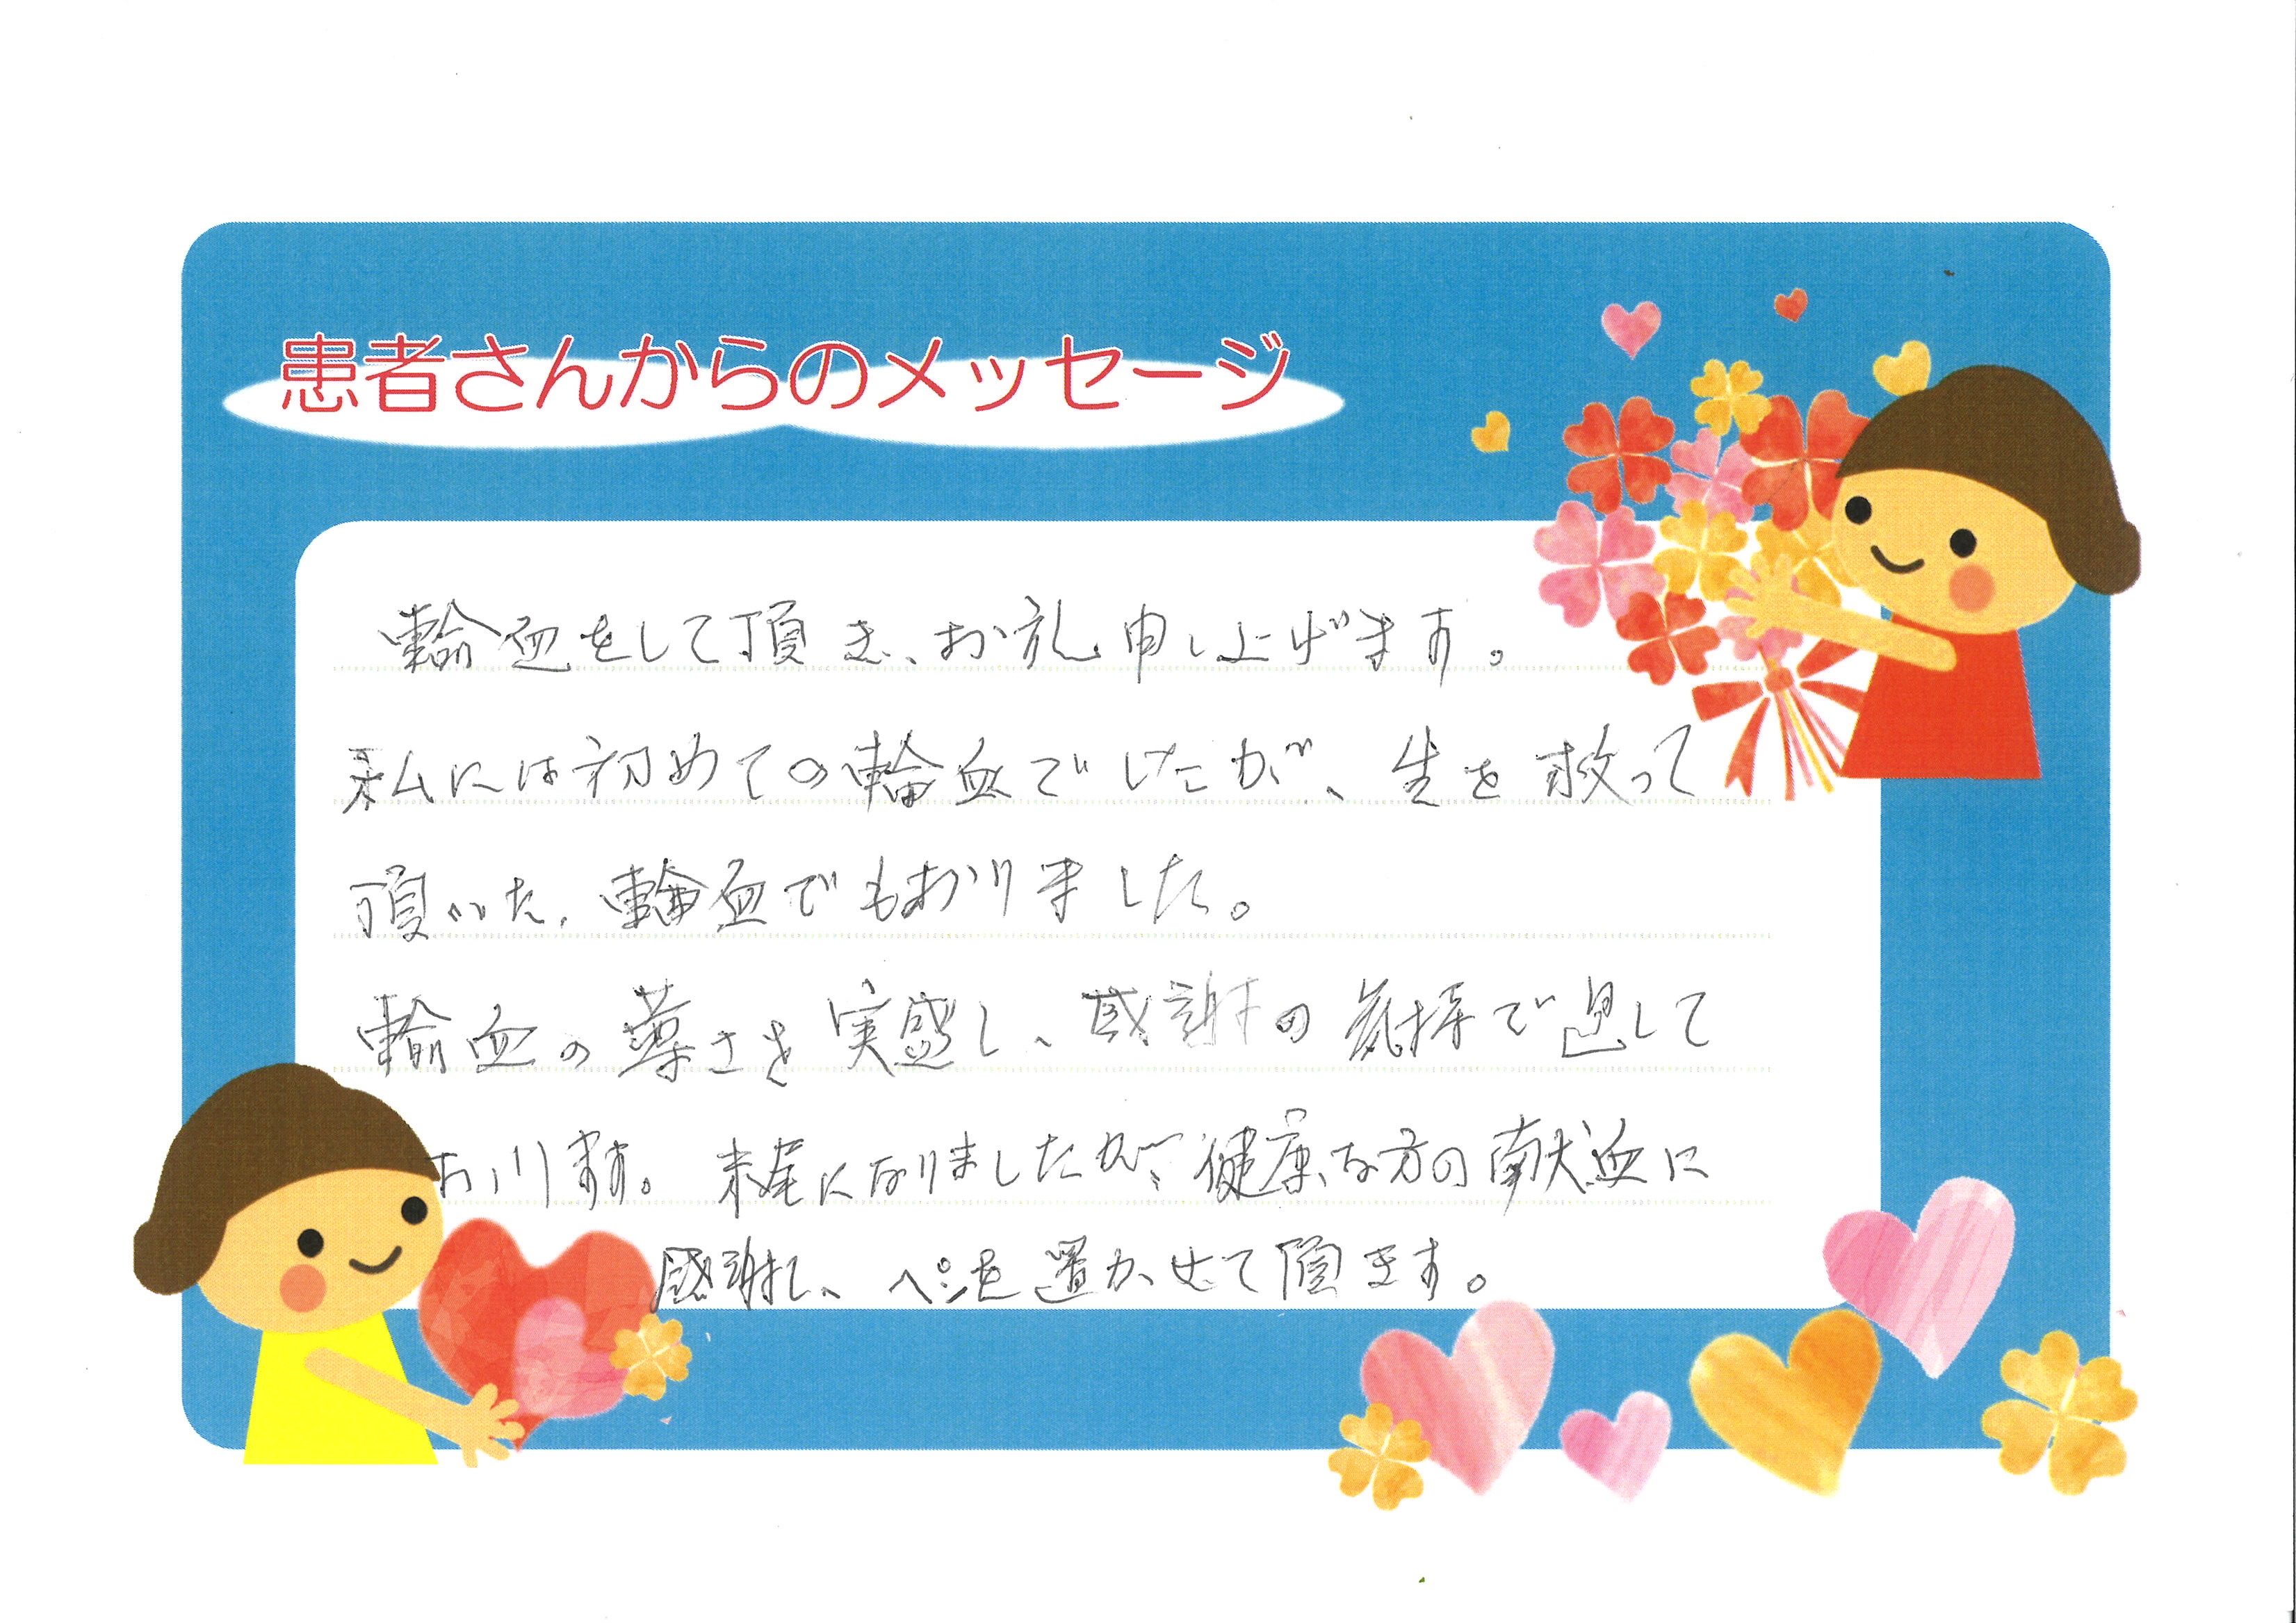 患者さんからのメッセージ
輸血をして頂き、お礼申し上げます。
私には初めての輸血でしたが、生を救って
頂いた、輸血でもおりました。
輸血の尊さを実感し、感謝の気持で過して
おります。末尾になりましたが、健康な方の献血に
感謝し、ペンを置かせて頂きます。